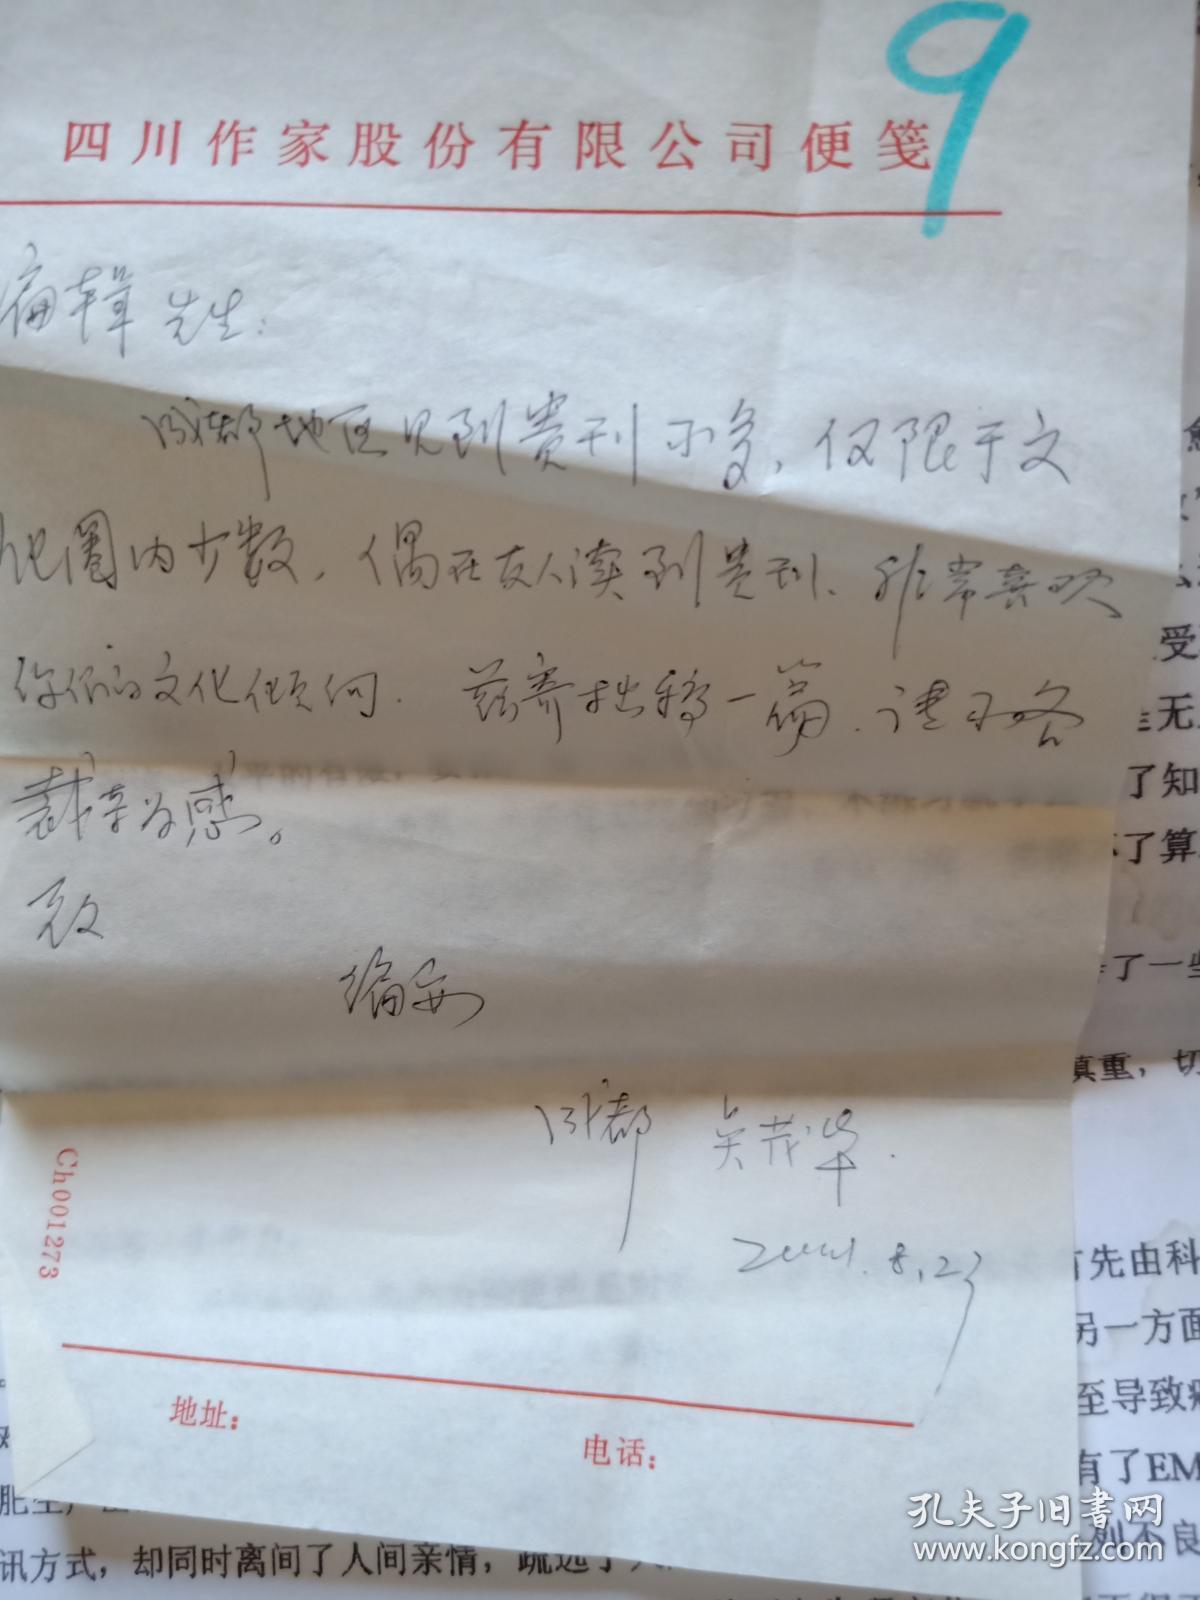 9
四川作家股份有限公司便笺
编辑先生:
成都地区见到贵刊不多,仅限于文
化圈内少数,偶在友人读到贵刊、非常喜欢
你们的文化倾向. 兹寄拙稿一篇.请不吝
裁幸为感。
致
编安
成都 吴茂华.
8.23
Ch001273
地址:
电话:
受
无
了知
了算
了一些
慎重,切
先由科
另一方面
至导致
有了EM
列不良
讯方式,却同时离间了人间亲情,疏远了人
孔夫子旧书网
www.kongfz.com